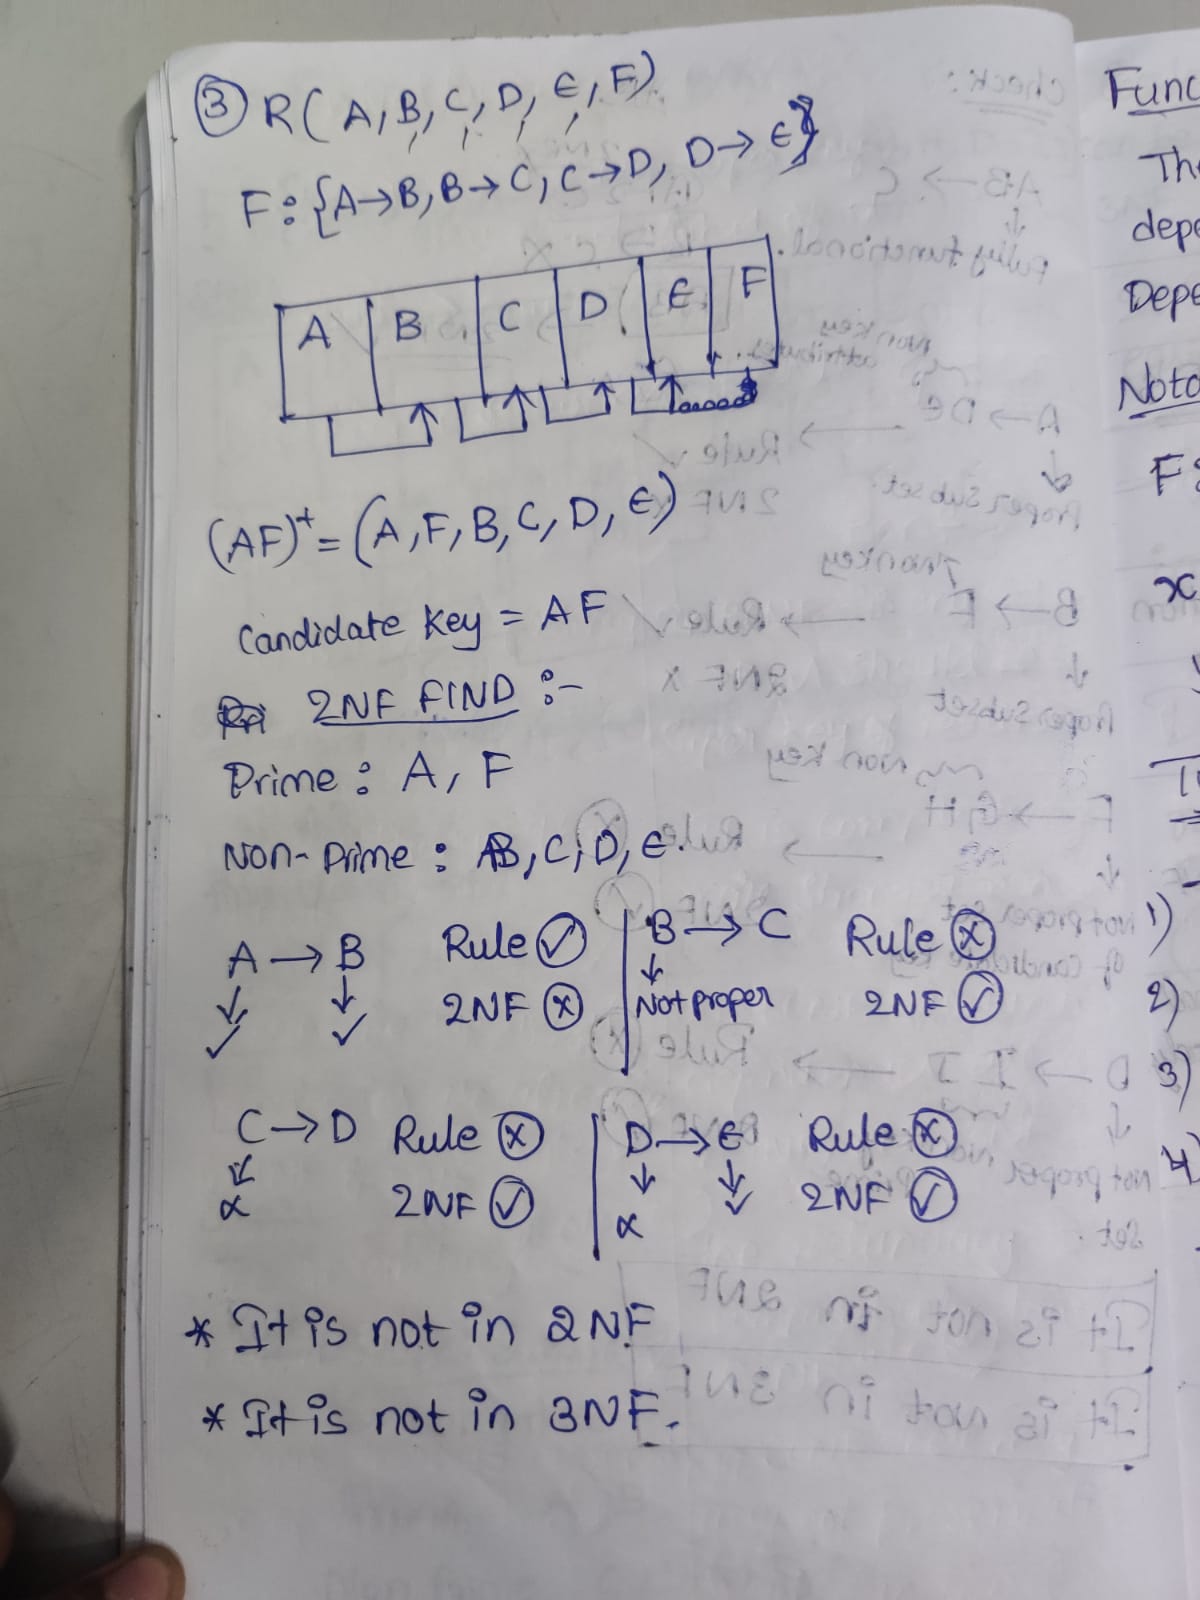 ③ R(A,B,C,D,E,F)
F: {A→B, B→C, C→D, D→E}
A B C D E F
(AF)⁺ = (A,F,B,C,D,E)
Candidate key = AF
2NF FIND :-
Prime : A, F
Non-Prime : B, C, D, E.
A → B Rule ✓ | B → C Rule ✗
↓ ↓ 2NF ✗ | ↓ Not proper 2NF ✓
✓ ✓
C → D Rule ✗ | D → E Rule ✗
↓ 2NF ✓ | ↓ ↓ 2NF ✓
x | x ✓
* It is not in 2NF
* It is not in 3NF.
Func
The
depe
Depe
Nota
F:
x
1)
2)
3)
4)